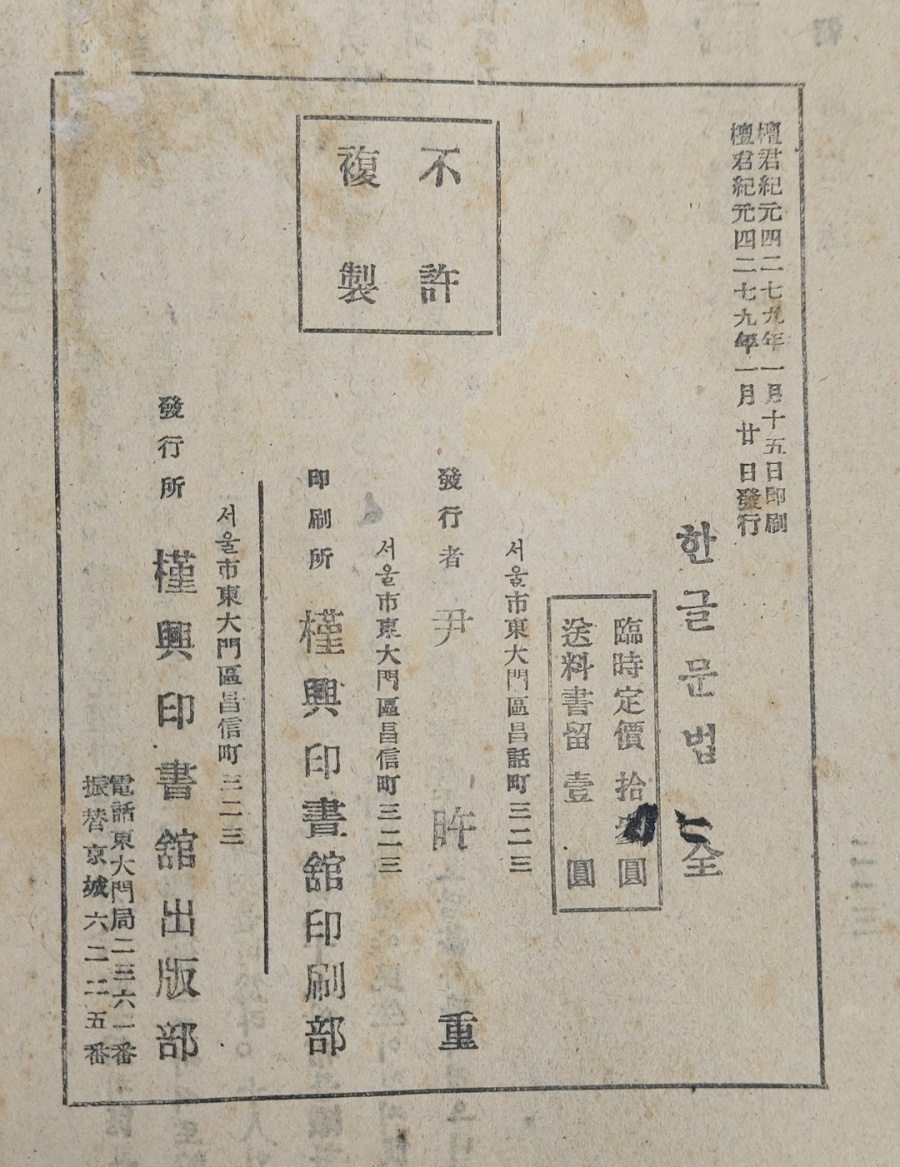 檀君紀元四二七九年一月十五日印刷
檀君紀元四二七九年一月廿日發行
한글문법 全
臨時定價 拾 圓
送料書留 壹圓
서울市東大門區昌話町三二三
發行者 尹 昨 重
서울市東大門區昌信町三二三
印刷所 槿興印書舘印刷部
不許
複製
서울市東大門區昌信町三二三
發行所 槿興印書舘出版部
電話東大門局二三六一番
振替京城六二二五番